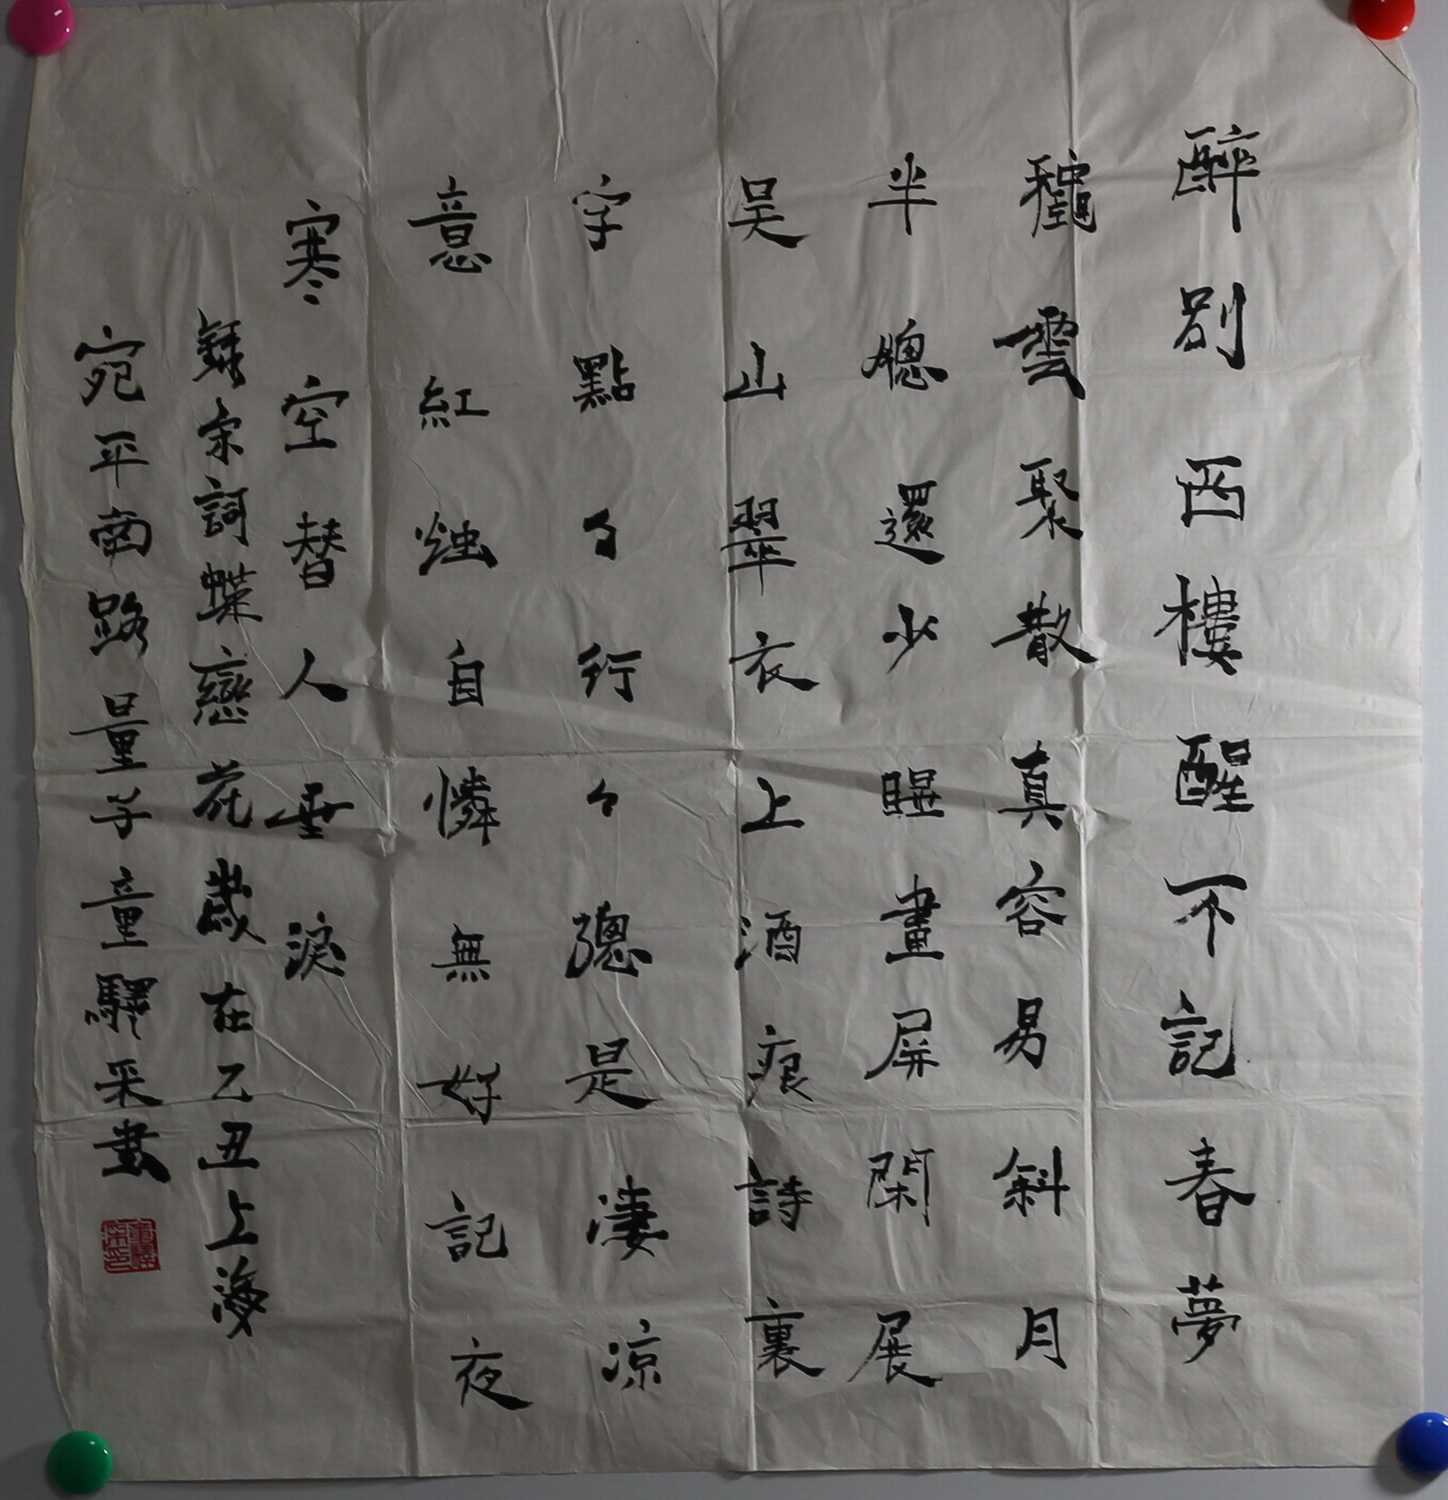 醉別西樓醒不記春夢
龝雲聚散真容易斜月
半牕還少睡畫屏閑展
吴山翠衣上酒痕詩裏
字點々行々總是淒凉
意紅烛自憐無好記夜
寒空替人垂淚
錄宋詞蝶戀花歲在乙丑上海
宛平南路量子童驛采書